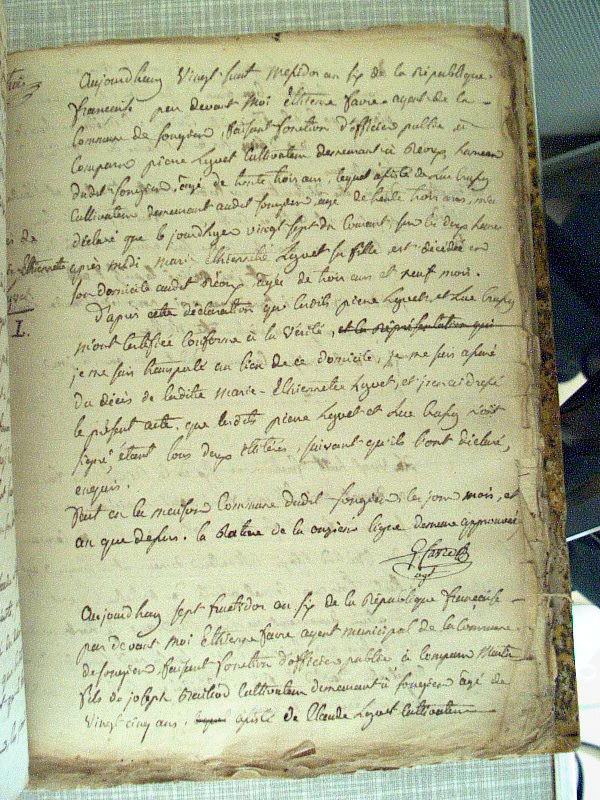 Aujourdhuy Vingt huit Messidor an six de la République
francaise par devant moi Ethienne faure agent de la
Commune de fongien, faisant fonction d'officier public a
Comparu piere Leyvet Cultivateur demeurant à hameau
dudit fongien, âgé de trente trois ans, lequel assisté de Luc
Cultivateur demeurant audit fongien âgé de trente trois ans, m'a
déclaré que le jourdhyer vingt sept du Courant sur les deux heures
après midi Marie Ethiennette Leyvet sa fille est décédée en
son domicile audit agée de trois ans et neuf mois.
D'apres cette déclaration que lesdits piere Leyvet, et Luc
m'ont Certifiée Conforme à la Vérité, et la Représentation qui
je me suis transporté au lieu de ce domicile, je me suis assuré
du décès de ladite Marie-Ethiennette Leyvet, et j'en ai dressé
le présent acte, que lesdits piere Leyvet et Luc n'ont
signé, étant tous deux illitérés, suivant qu'ils l'ont déclaré,
enquis.
Fait en la maison Commune dudit fongien les jour mois, et
an que dessus. la Rature de la onzieme ligne demeure approuvée
E. faure
agt
Aujourdhuy sept fructidor an six de la République française
par devant moi Ethienne faure agent municipal de la Commune
de fongien, faisant fonction d'officier public à Comparu
fils de joseph Cultivateur demeurant à fongien âgé de
Vingt cinq ans, assisté de Claude Leyvet Cultivateur
de
Ethiennette
I.